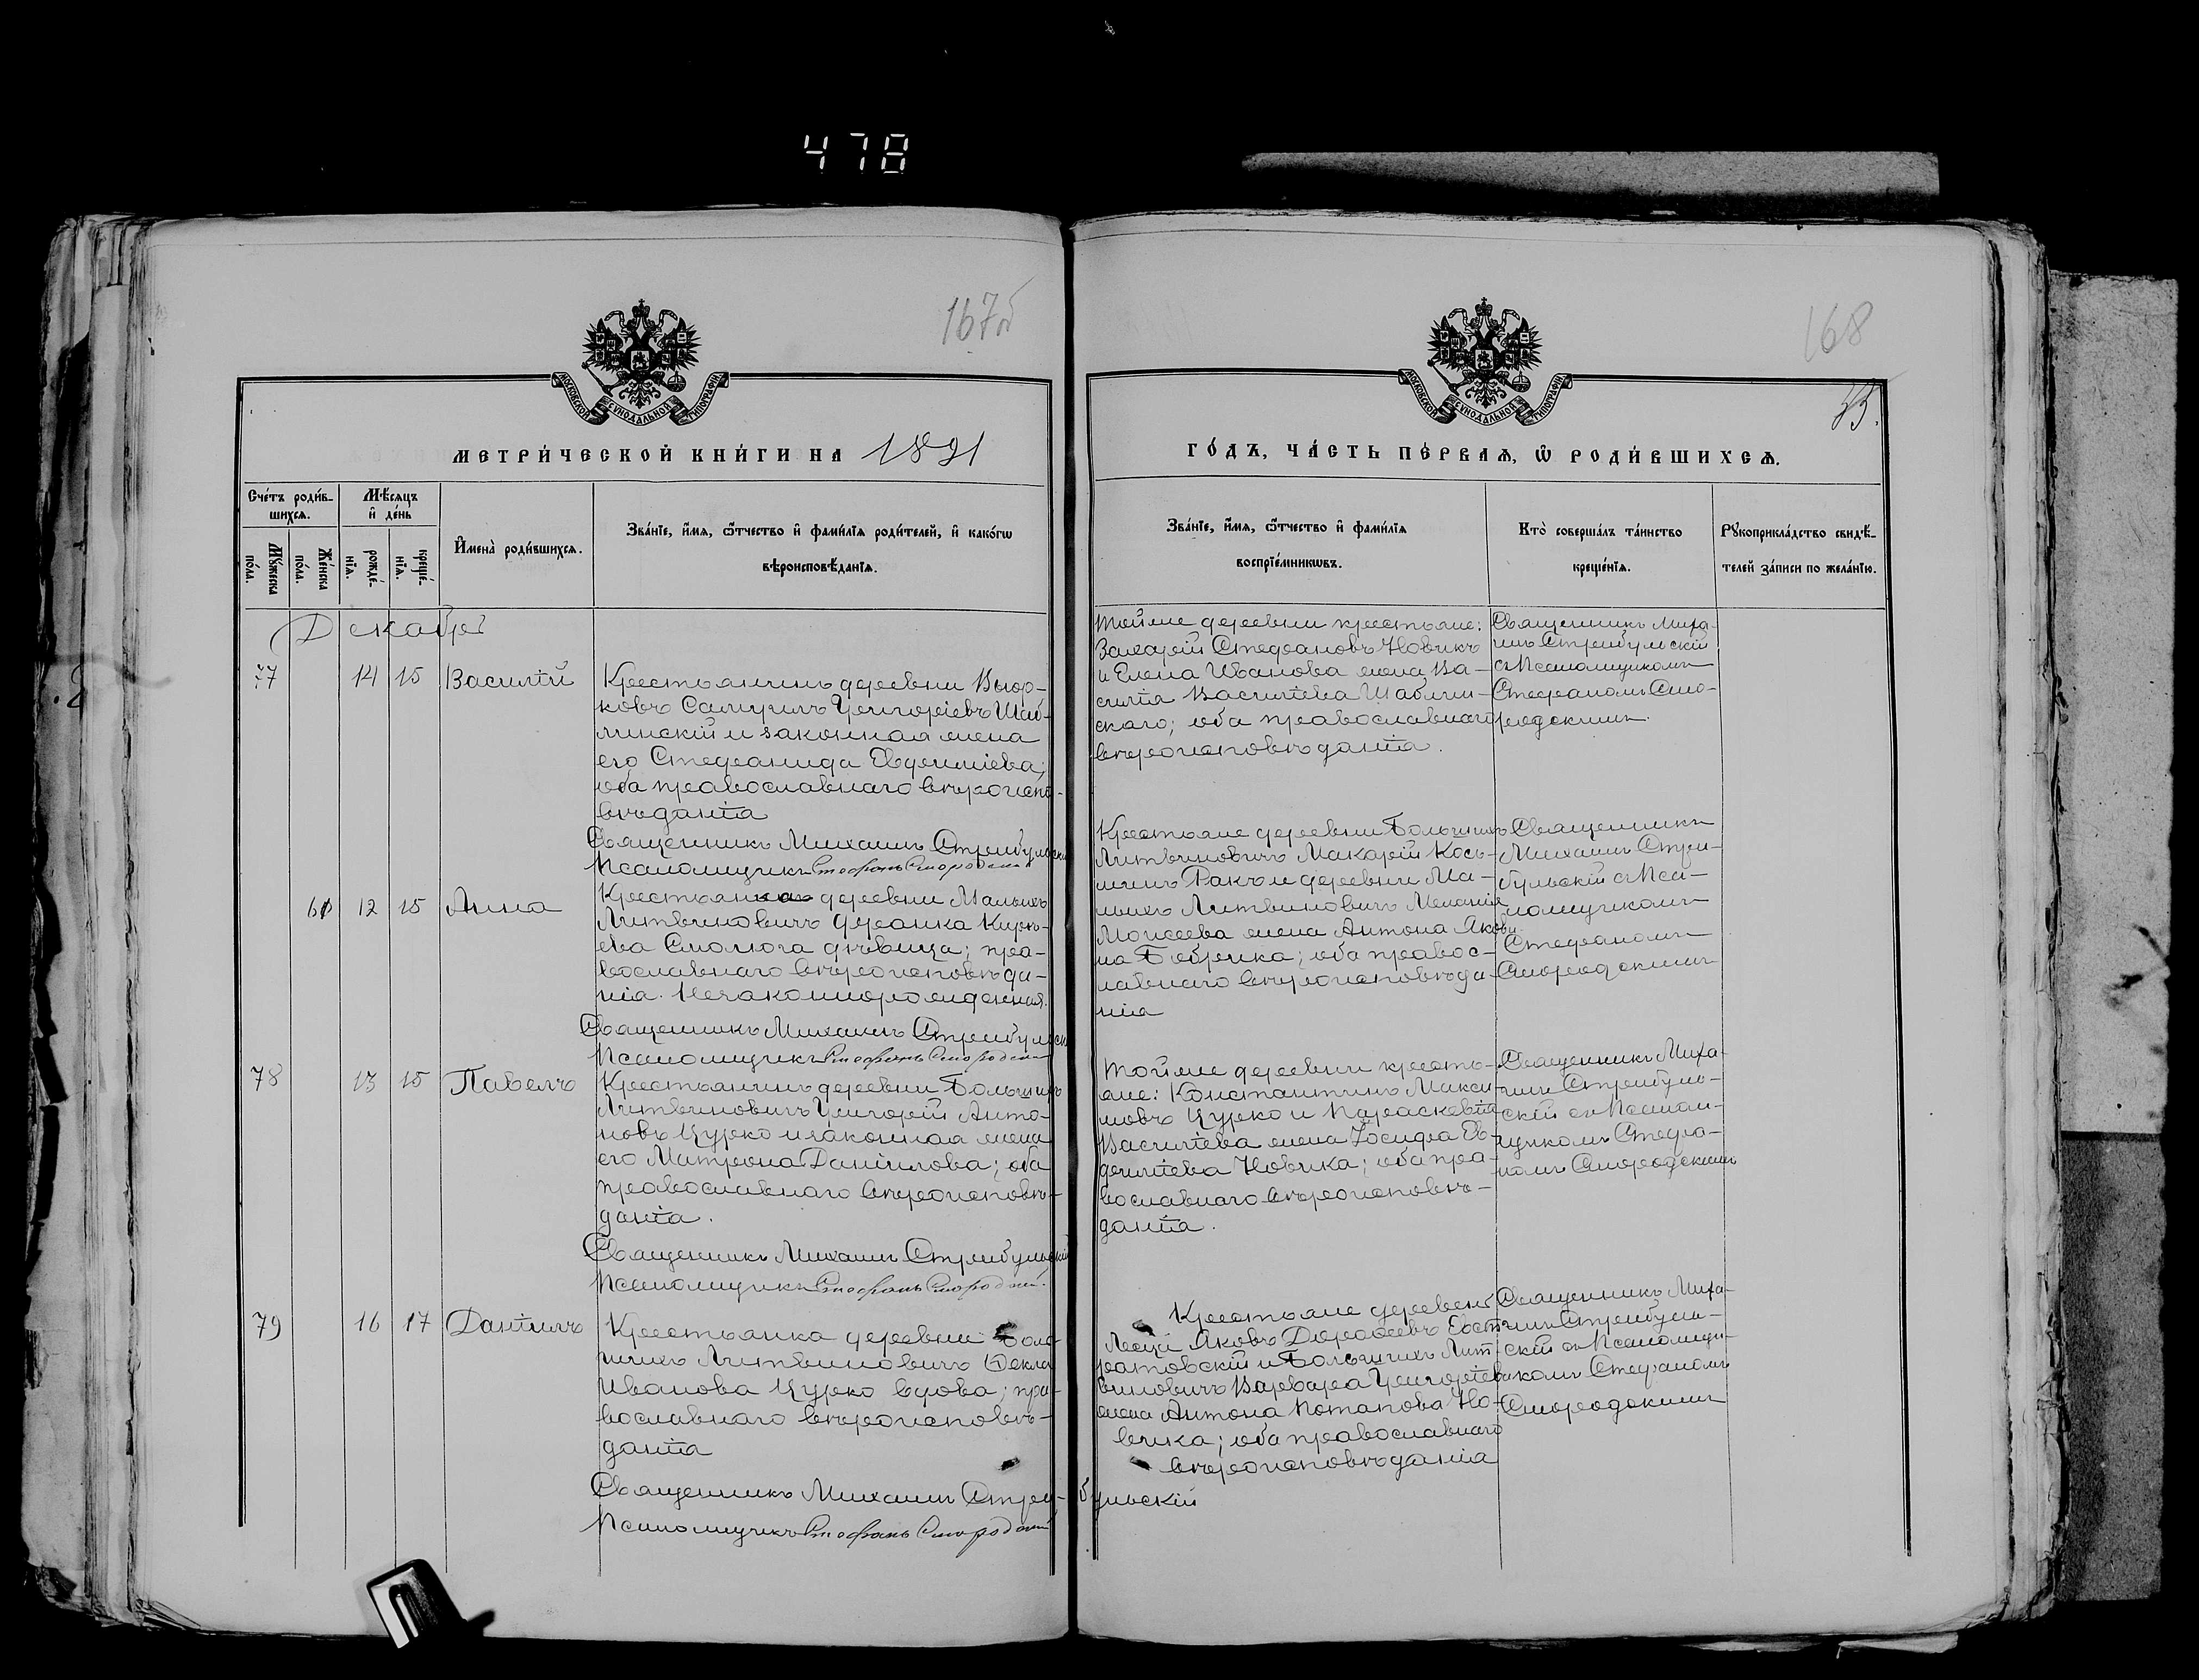 478
167об
168
МОСКОВСКОЙ СѴНОДАЛЬНОЙ ТИПОГРАФІИ
МОСКОВСКОЙ СѴНОДАЛЬНОЙ ТИПОГРАФІИ
МЕТРИ́ЧЕСКОЙ КНИ́ГИ НА 1891
ГО́ДЪ, ЧА́СТЬ ПЕ́РВАѦ, Ѡ РОДИ́ВШИХСѦ.
Сче́тъ роди́в-
шихсѧ.
Мꙋ́жеска
по́ла.
Же́нска
по́ла.
Мѣ́сѧцъ
и҆ де́нь
рожде́-
нїѧ.
креще́-
нїѧ.
И҆мена̀ роди́вшихсѧ.
Зва́нїе, и҆́мѧ, ѻ҆́тчество и҆ фамилїѧ роди́телей, и҆ како́гѡ
вѣроисповѣ́данїѧ.
Зва́нїе, и҆́мѧ, ѻ҆́тчество и҆ фами́лїѧ
воспрїе́мникѡвъ.
Кто̀ соверша́лъ та́инство
креще́нїѧ.
Рꙋкоприкла́дство свидѣ́-
телей за́писи по жела́нїю.
Декабрь
77 14 15 Василій
Крестьянинъ деревни Вьюр-
ковъ Самуилъ Григоріевъ Шаб-
линскій и законная жена
его Стефанида Евфиміева;
оба православнаго вѣроиспо-
вѣданія
Священникъ Михаилъ Стрибульскій
Псаломщикъ Стефанъ Смородскій
Тойже деревни крестьяне:
Захарій Стефановъ Новикъ
и Елена Иванова жена Ва-
силія Васильева Шаблин-
скаго; оба православнаго
вѣроисповѣданія.
Священникъ Миха-
илъ Стрибульскій
съ Псаломщикомъ
Стефаномъ Смо-
родскимъ.
61 12 15 Анна
Крестьянка деревни Малыхъ
Литвиновичъ
Смолюга дѣвица; пра-
вославнаго вѣроисповѣда-
нія. Незаконнорожденная.
Священникъ Михаилъ Стрибульскій
Псаломщикъ Стефанъ Смородскій
Крестьяне деревни Большихъ
Литвиновичъ Макарій Кось-
минъ Ракъ и деревни Ма-
лыхъ Литвиновичъ Меланія
Моисеева жена Антона Якови-
на Бобрика; оба правос-
лавнаго вѣроисповѣда-
нія
Священникъ
Михаилъ Стри-
бульскій съ Пса-
ломщикомъ
Стефаномъ
Смородскимъ
78 13 15 Павелъ
Крестьянинъ деревни Большихъ
Литвиновичъ Григорій Анто-
новъ Цурко и законная жена
его Матрона Даніилова; оба
православнаго вѣроисповѣ-
данія.
Священникъ Михаилъ Стрибульскій
Псаломщикъ Стефанъ Смородскій.
Тойже деревни кресть-
яне: Константинъ Макси-
мовъ Цурко и Параскевія
Васильева жена Іосифа Ев-
фиміева Новика; оба пра-
вославнаго вѣроисповѣ-
данія.
Священникъ Миха-
илъ Стрибуль-
скій съ Псалом-
щикомъ Стефа-
номъ Смородскимъ
79 16 17 Даніилъ
Крестьянка деревни Боль-
шихъ Литвиновичъ Ѳекла
Иванова Цурко вдова; пра-
вославнаго вѣроисповѣ-
данія
Священникъ Михаилъ Стри-бульскій
Псаломщикъ Стефанъ Смородскій
Крестьяне деревень
Яковъ Дорофеевъ Евст-
ратовскій и Большихъ Лит-
виновичъ Варвара Григоріева
жена Антона Потапова Но-
вика; оба православнаго
вѣроисповѣданія
Священникъ Миха-
илъ Стрибуль-
скій съ Псаломщи-
комъ Стефаномъ
Смородскимъ